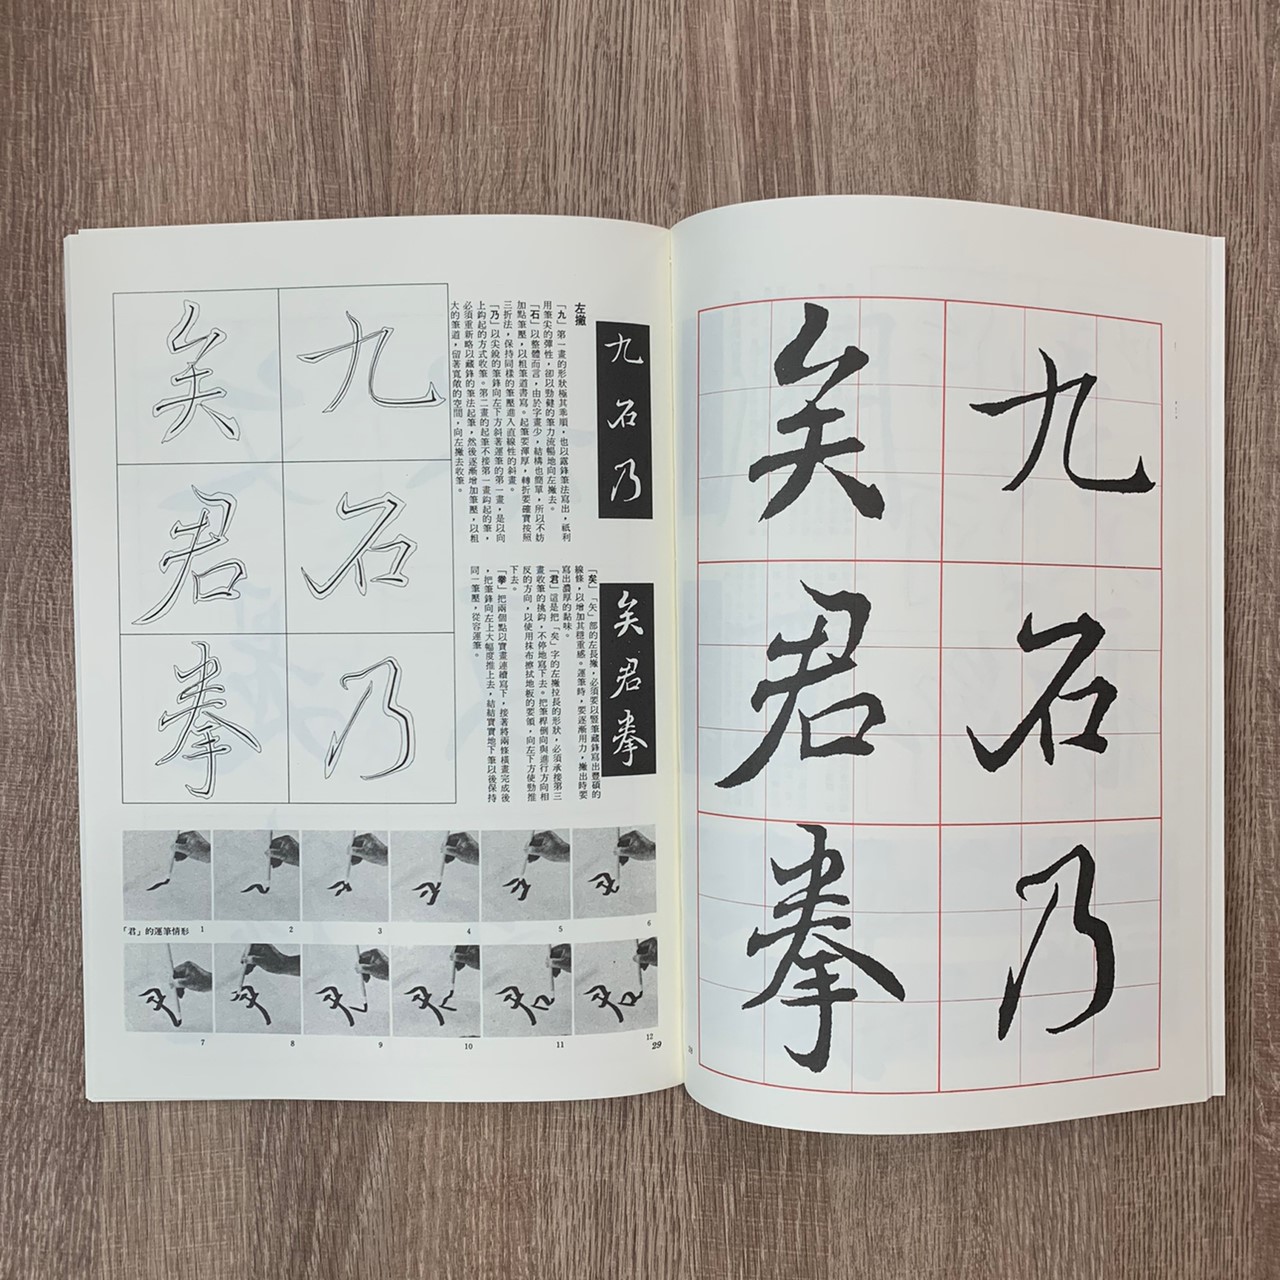 九石乃
矣君拳
28
九石乃
左撇
「九」第一畫的形狀極其乖順，也以露鋒筆法寫出，祇利
用筆尖的彈性，卻以勁健的筆力流暢地向左撇去。
「石」以整體而言，由於字畫少，結構也簡單，所以不妨
加點筆壓，以粗筆道書寫。起筆要渾厚，轉折要確實按照
三折法，保持同樣的筆壓進入直線性的斜畫。
「乃」以尖銳的筆鋒向左下方斜著運筆的第一畫，是以向
上鈎起的方式收筆。第二畫的起筆不接第一畫鈎起的筆，
必須重新略以藏鋒的筆法起筆，然後逐漸增加筆壓，以粗
大的筆道，留著寬敞的空間，向左撇去收筆。
矣君拳
「矣」「矢」部的左長撇，必須要以豎筆藏鋒寫出豐碩的
線條，以增加其穩重感。運筆時，要逐漸用力，撇出時要
寫出濃厚的黏味。
「君」這是把「矣」字的左撇拉長的形狀，必須承接第三
畫收筆的挑鈎，不停地寫下去。把筆桿倒向與進行方向相
反的方向，以使用抹布擦拭地板的要領，向左下方使勁推
下去。
「拳」把兩個點以實畫連續寫下，接著將兩條橫畫完成後
，把筆鋒向左上大幅度推上去，結結實實地下筆以後保持
同一筆壓，從容運筆。
九石乃
矣君拳
「君」的運筆情形 1 2 3 4 5 6
7 8 9 10 11 12
29